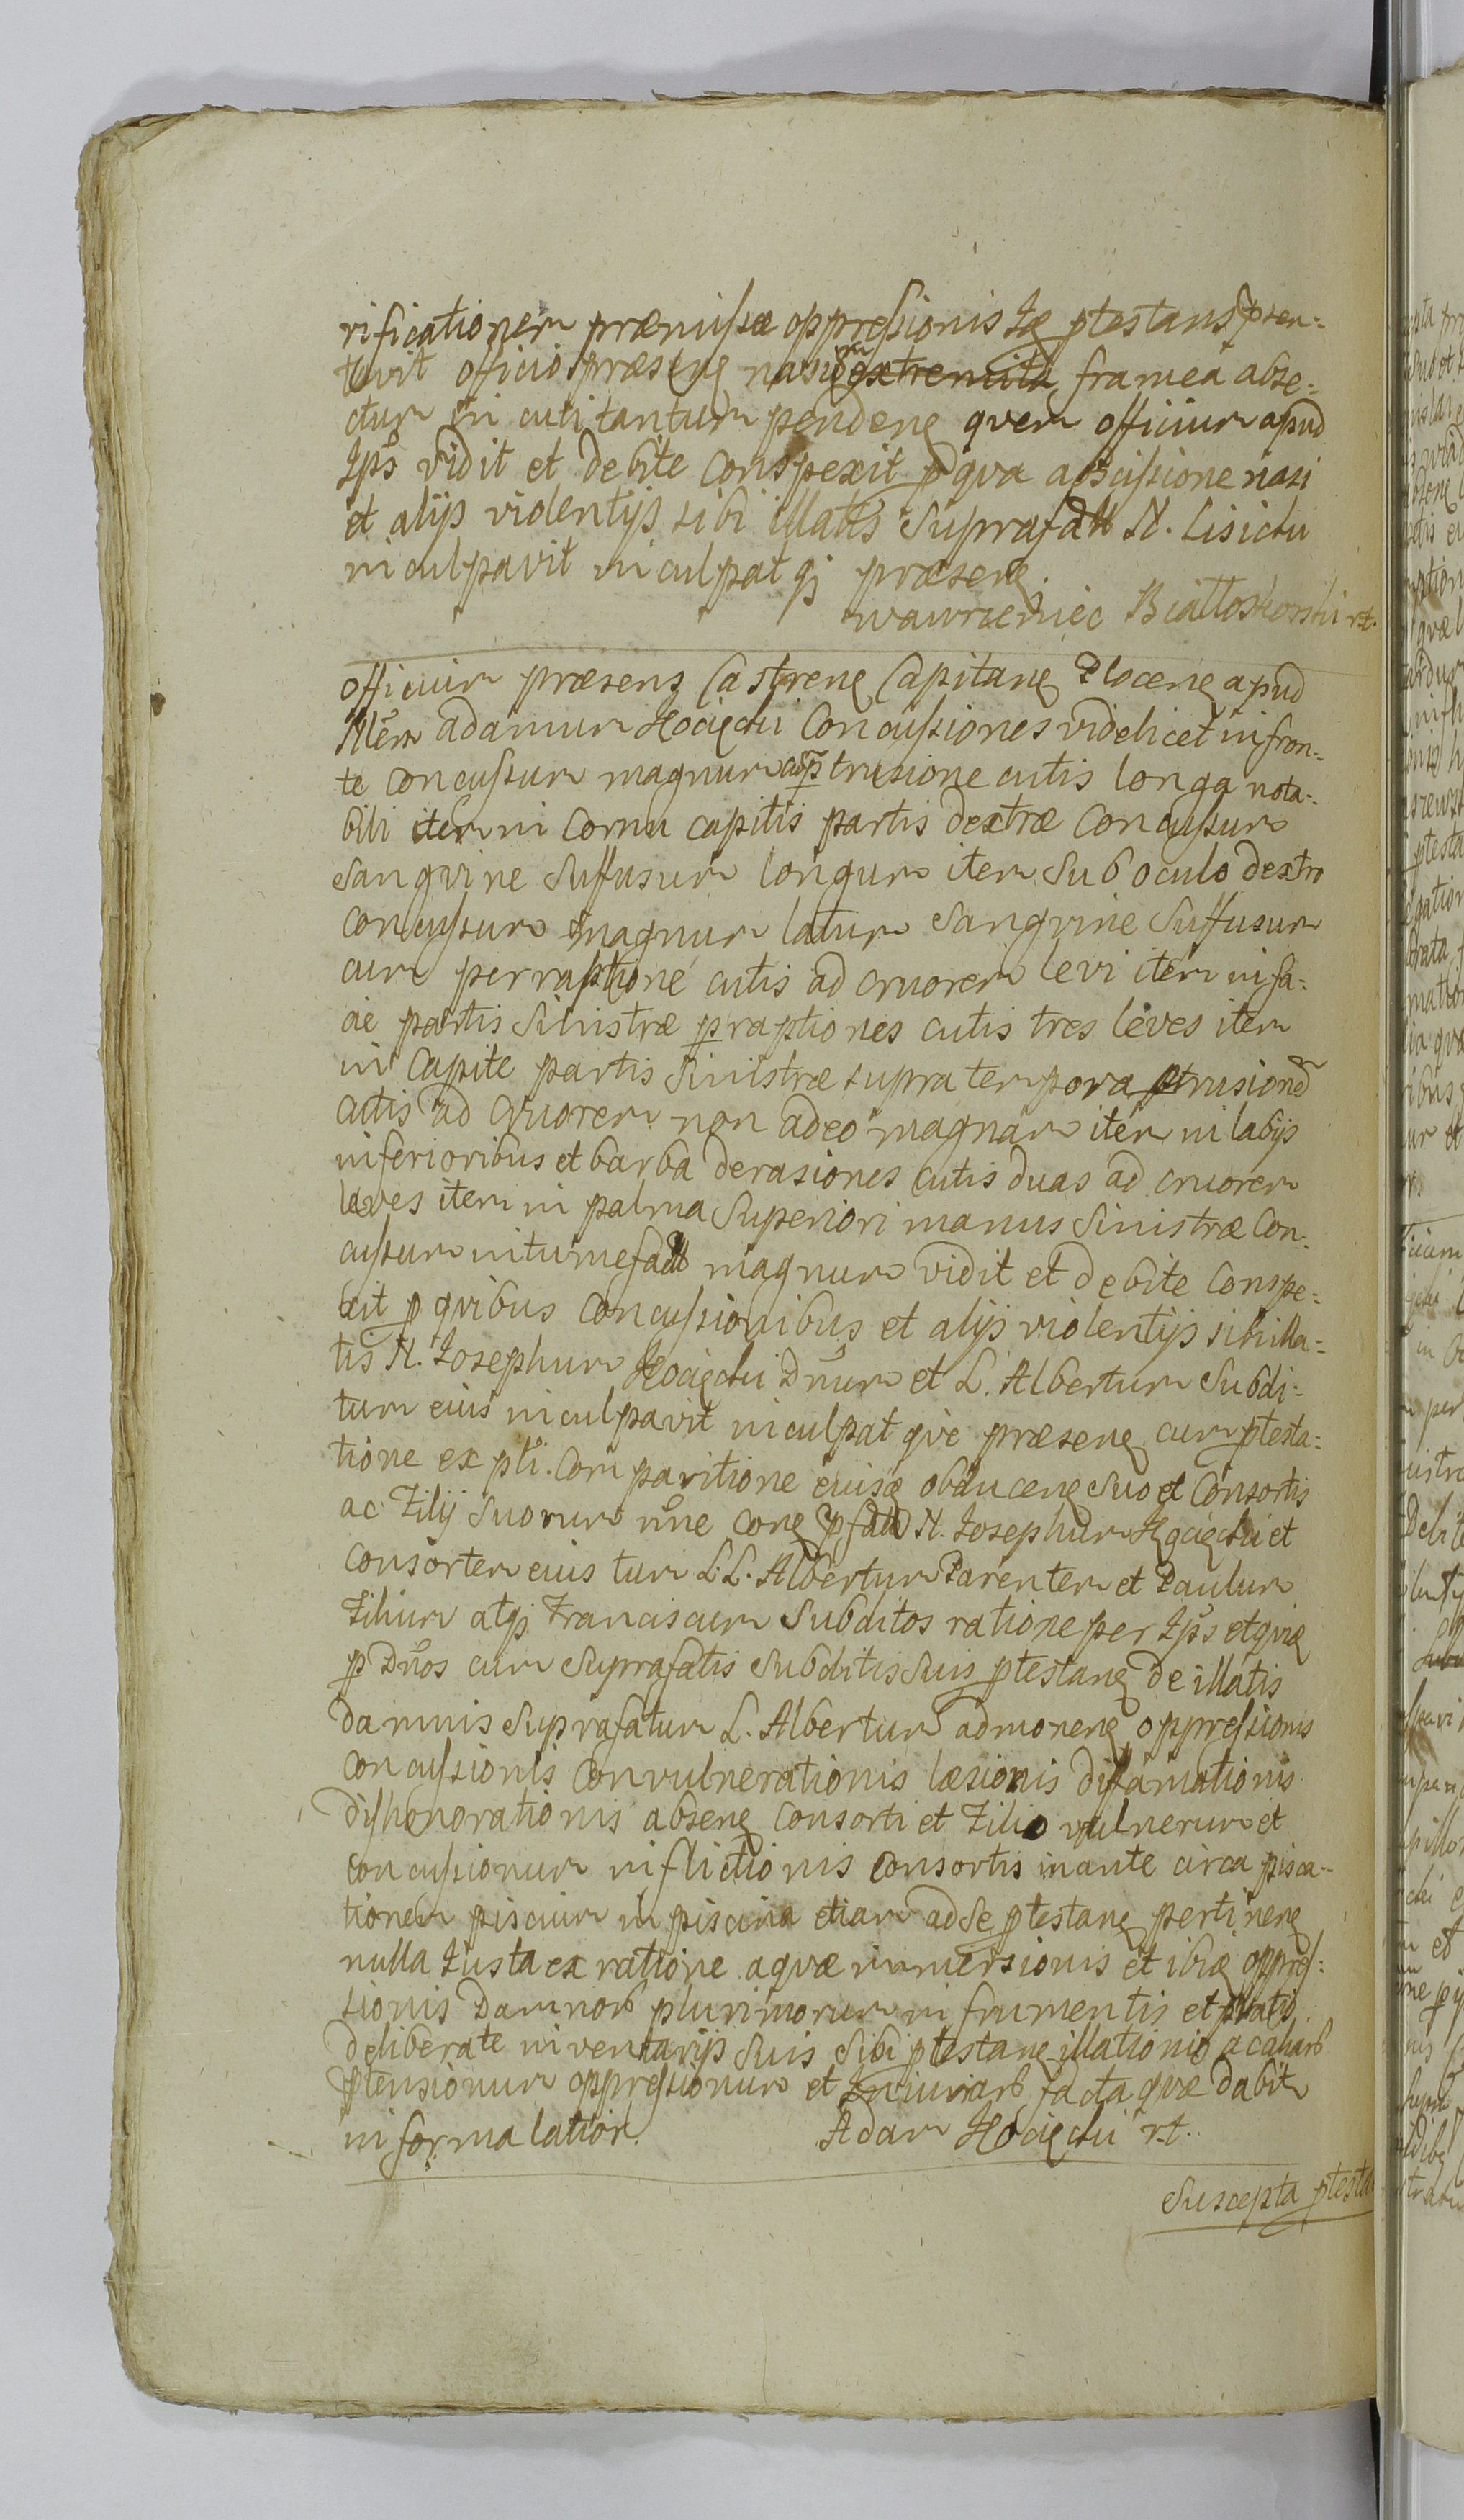 rificationem præmissæ oppressionis Iæ ptestans psen-
tavit officio præsenę nasum extremita framea absc-
ctum in cuti tantum pendenę quem officium apud
Ips vidit et debite conspexit p qva abscissione nasi
et alijs violentijs sibi illatis suprafatt N. Lisicki
inculpavit inculpat qz præsenę.
Wawrzeniec Białłoskorski rt.
Officium præsens Castrenę Capitanę Plocenę apud
Nlem Adamum Hocięcki concussiones videlicet in fron-
te concussum magnum cum ptrusione cutis longa nota-
bili item in cornu capitis partis dextræ concussum
sangvine suffusum longum item sub oculo dextro
concussum magnum latum sangvine suffusum
cum perraptione cutis ad cruorem levi item in fa-
cie partis sinistræ praptiones cutis tres leves item
in capite partis sinistræ supra tempora ptrusione
cutis ad cruorem non adeo magnam item in labijs
inferioribus et barba derasiones cutis duas ad cruorem
leves item in palma superiori manus sinistræ con-
cussum intumefatt magnum vidit et debite conspe-
xit p qvibus concussionibus et alijs violentijs sibi illa-
tis N. Iosephum Hocięcki Dnum et L. Albertum subdi-
tum eius inculpavit inculpat qve præsenę cum ptesta-
tione ex pti. comparitione eiusę obducenę suo et consortis
ac Filij suorum nne conę pfatt N. Iosephum Hocięcki et
consortem eius tum L.L. Albertum Parentem et Paulum
Filium atqz Franciscum subditos ratione per Ips et qviæ
p Dnos cum suprafatis subditis suis ptestanę de illatis
damnis suprafatum L. Albertum admonenę oppressionis
concussionis convulnerationis læsionis diffamationis
dishonorationis absenę consorti et Filio vulnerum et
concussionum inflictionis consortis in ante circa pisca-
tionem piscium in piscina etiam ad se ptestanę pertinenę
nulla iusta ex ratione aqvæ immersionis et ibię oppres-
sionis damnorb plurimorum in frumentis et pratis
deliberate in ventarijs suis sibi ptestanę illationis ac aliarb
ptensionum oppressionum et Iniuriarb facta qvæ dabit
in forma latiori.
Adam Hocięcki rt.
Suscepta ptesta